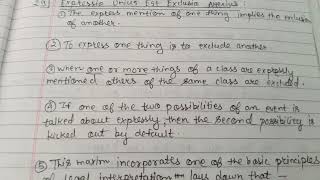 Expressio Unius Est Exclusio Alterius:
① The express mention of one thing implies the exclusion
of another.
② To express one thing is to exclude another
③ When one or more things of a class are expressly
mentioned others of the same class are excluded.
④ If one of the two possibilities of an event is
talked about expressly, then the second possibility is
kicked out by default.
⑤ This maxim incorporates one of the basic principles
of legal interpretation lays down that -